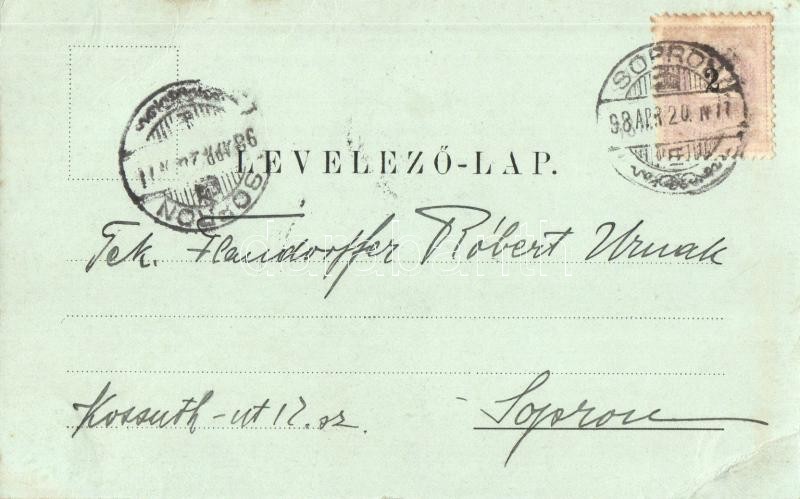 SOPRON
98 APR 20. N 11
2
SOPRON
98 APR 2
LEVELEZŐ-LAP.
Tek. Flandorffer Róbert Urnak
Kossuth-ut 12. sz.
Sopron